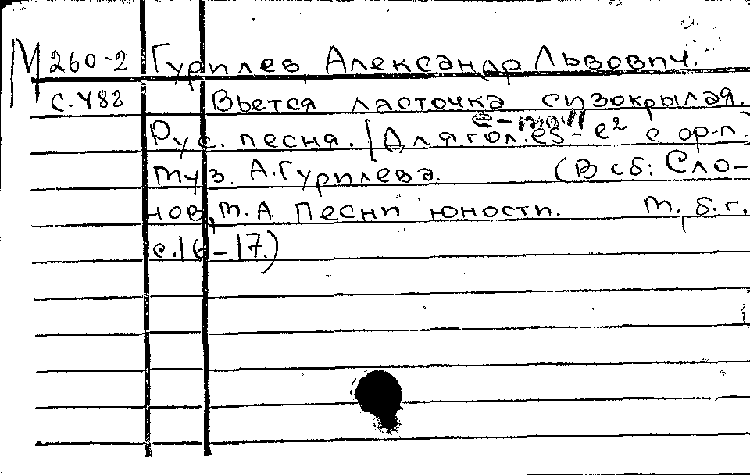 М 260-2 Гурилев, Александр Львович.
С.482 Вьется ласточка сизокрылая.
e-moll
Рус. песня. / Для гол. es¹-e² с ор-п.
Муз. А. Гурилева. (В сб: Сло-
нов, М. А Песни юности. М, б. г.
с. 16-17.)